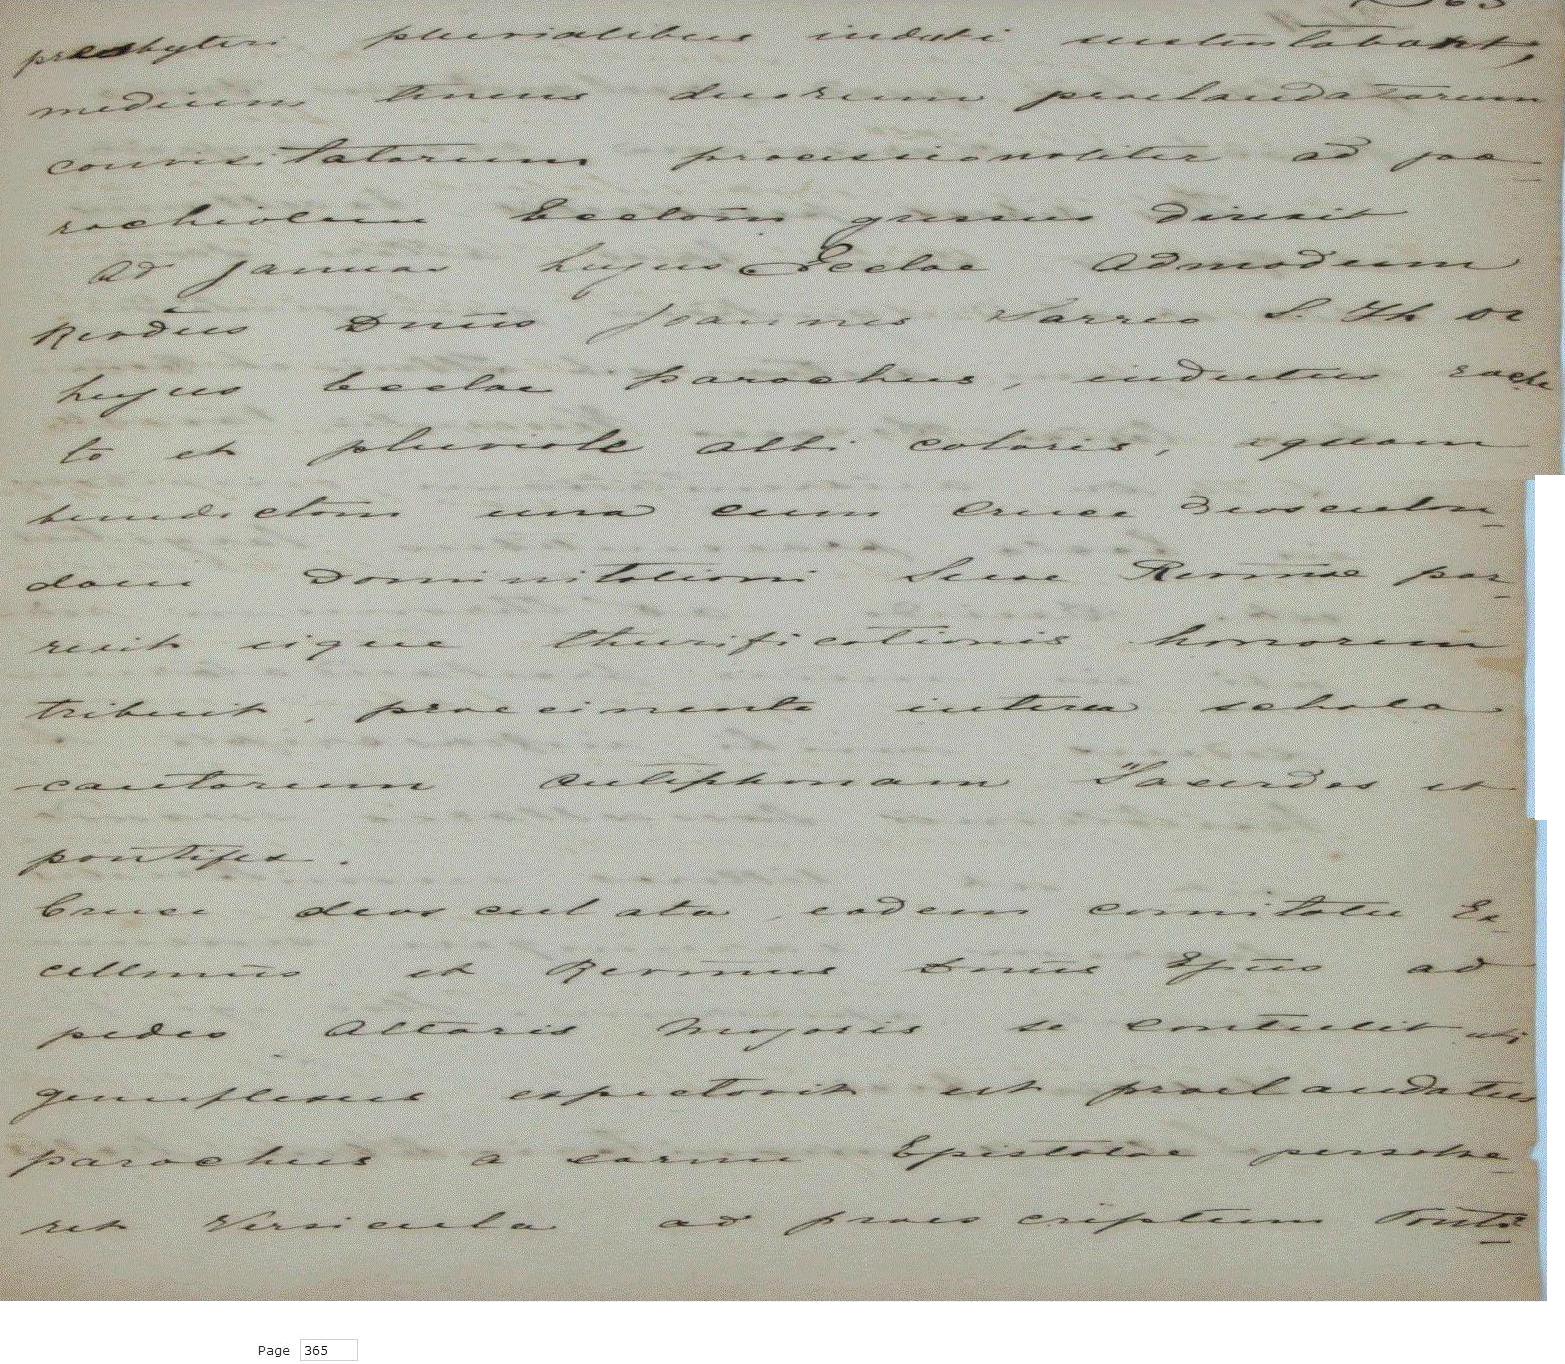 365
presbyteri pluvialibus induti sustentabant,
medium tenens duorum praelaudatorum
convisitatorum processionaliter ad pa-
rochialem Ecclam gressus direxit
Ad Januas hujus Ecclae Admodum
Revdus Dnus Joannes Sarreo S. Th Dr
hujus Ecclae Parochus, indutus roche
to et pluviale albi coloris, aquam
benedictam una cum cruce deosculan-
dam Dominitationi Suae Revmae por-
rexit eique thurificationis honorem
tribuit, praecinente interea schola
cantorum antiphonam "Sacerdos et
pontifex.
Cruce deosculata eodem comitatu Ex-
cellmus et Revmus Dnus Epus ad
pedes Altaris Majoris se contulit ubi
genuflexus expectavit ut praelaudatus
parochus a cornu Epistolae persolve-
ret Versicula ad praescriptum Pontis
Page 365